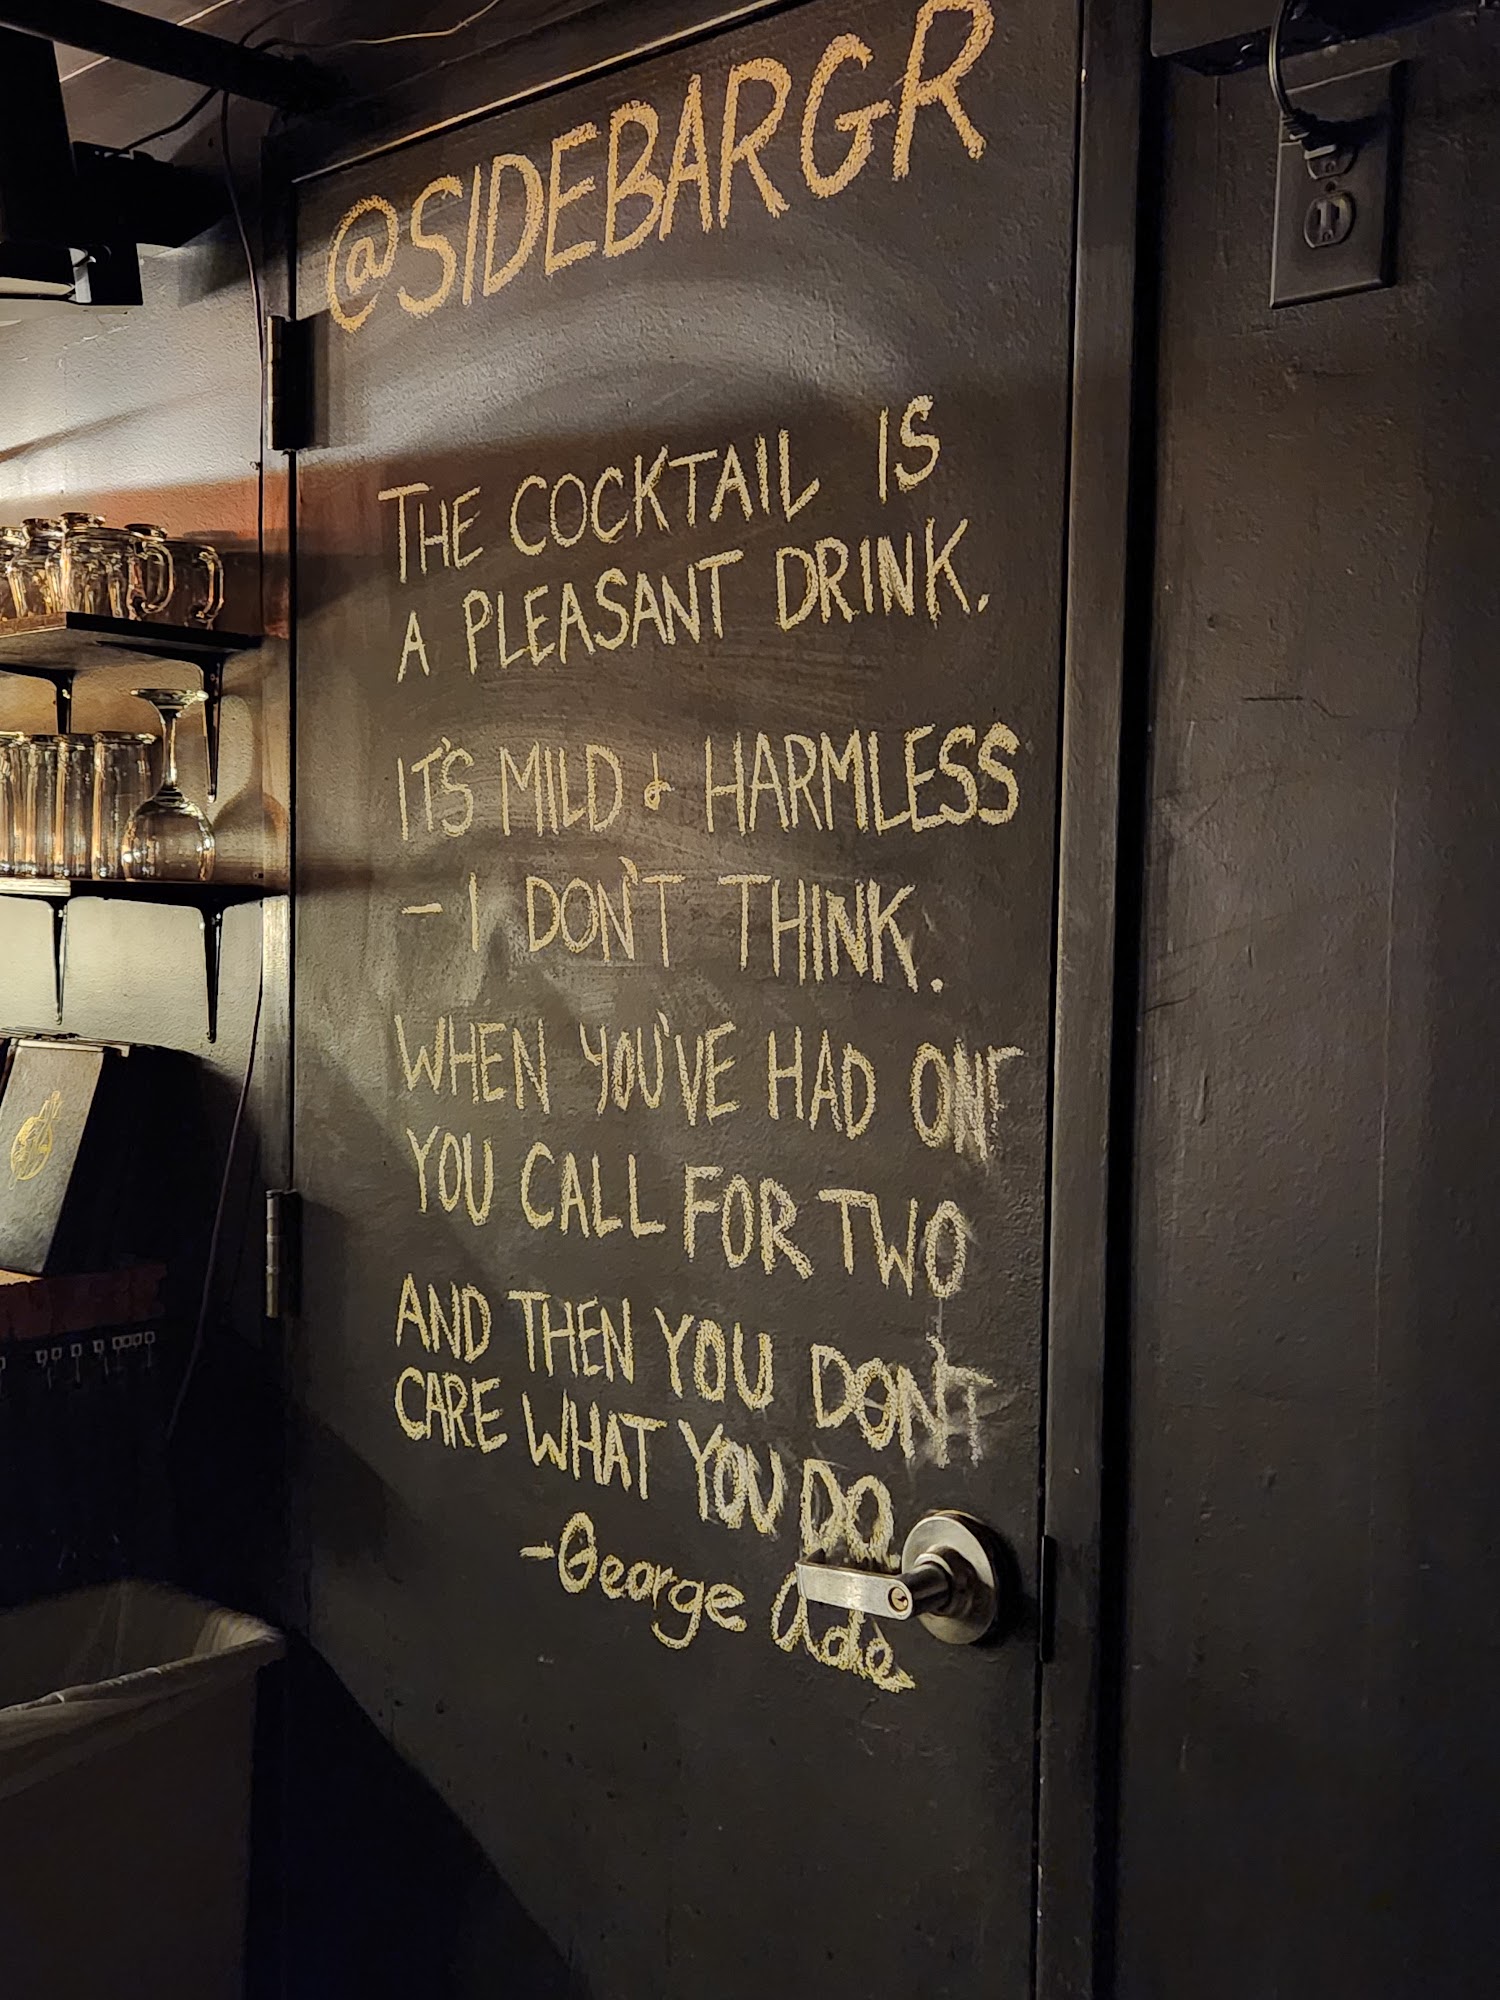 @SIDEBARGR
THE COCKTAIL IS
A PLEASANT DRINK.
IT'S MILD & HARMLESS
- I DON'T THINK.
WHEN YOU'VE HAD ONE
YOU CALL FOR TWO
AND THEN YOU DON'T
CARE WHAT YOU DO
-George Ade